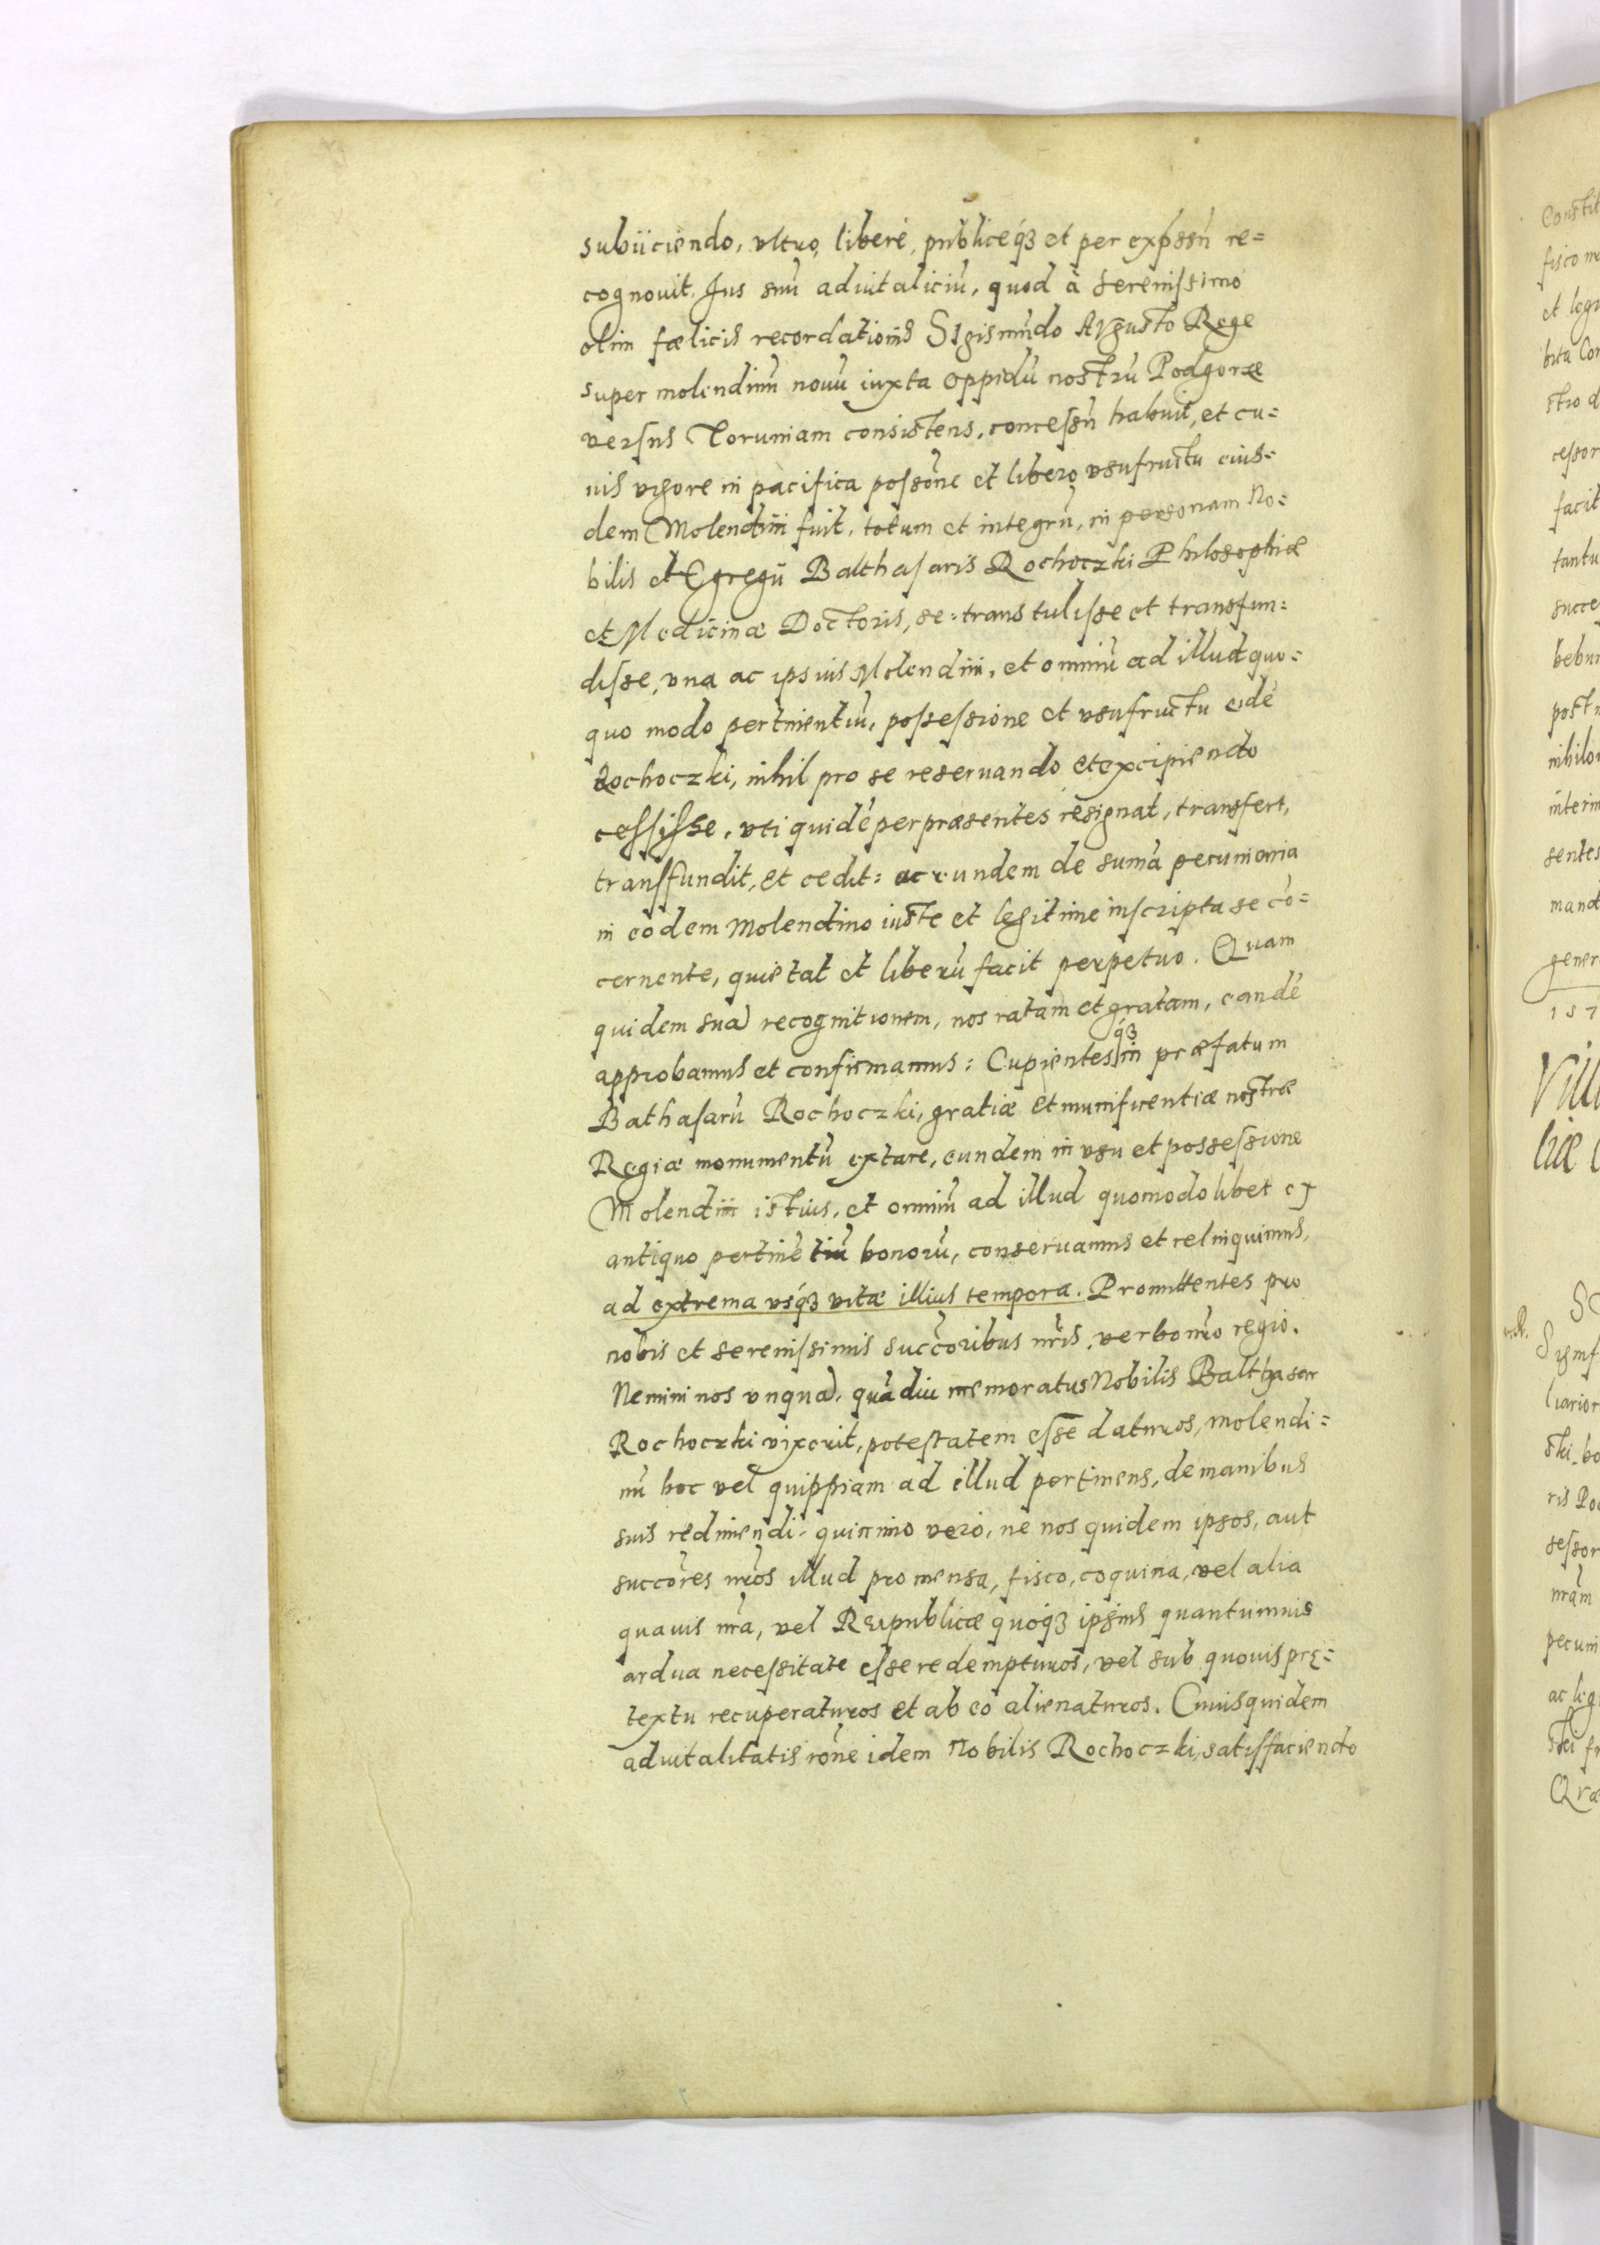 subiiciendo, vltro, liberè, publiceq́3 et per exp̃ssũ re=
cognouit. Jus suũ aduitaliciũ, quod à serenissimo
olim fœlicis recordationis Sigismũdo Augusto Rege
super molendinũ nouũ iuxta oppidũ nostrũ Podgorze
versus Toruniam consistens, concessũ habuit, et cu=
uis vigore in pacifica possõne et libero vsufructu eius=
dem Molendini fuit, totum et integrũ, in personam No=
bilis et Egregii Balthasaris Rochoczki Philosophiæ
et Medicinæ Doctoris, se=transtulisse et transfun=
disse, vna ac ipsius Molendini, et omniũ ad illud quo=
quo modo pertinentiũ, possessione et vsufructu eidẽ
Rochoczki, nihil pro se reseruando et excipiendo
cessisse, vti quidẽ per præsentes resignat, transfert,
transfundit, et cedit: ac eundem de sum̃a pecuniaria
in eodem Molendino iuste et legitime inscripta se cõ=
cernente, quietat et liberũ facit perpetuo. Quam
quidem suã recognitionem, nos ratam et gratam, eandẽ
approbamus et confirmamus: Cupientes q́3 in præfatum
Bathasarũ Rochoczki, gratiæ et munificentiæ nostræ
Regiæ monumentũ extare, eundem in vsu et possessione
Molendini istius, et omniũ ad illud quomodolibet ex
antiquo pertinẽtiũ bonorũ, conseruamus et relinquimus,
ad extrema vsq́3 vitæ illius tempora. Promittentes pro
nobis et serenissimis succ̃oribus nr̃is, verbo nr̃o regio.
Nemini nos vnquã, quãdiu memoratus Nobilis Balthasar
Rochoczki vixerit, potestatem esse daturos, molendi=
nũ hoc vel quippiam ad illud pertinens, de manibus
suis redimendi, quinimo verò, ne nos quidem ipsos, aut
succõres nr̃os illud pro mensa, fisco, coquina, vel alia
quauis nr̃a, vel Reipublicæ quoq́3 ipsius quantumuis
ardua necessitate esse redempturos, vel sub quouis præ=
textu recuperaturos et ab eo alienaturos. Cuius quidem
aduitalitatis rõne idem Nobilis Rochoczki, satisfaciendo